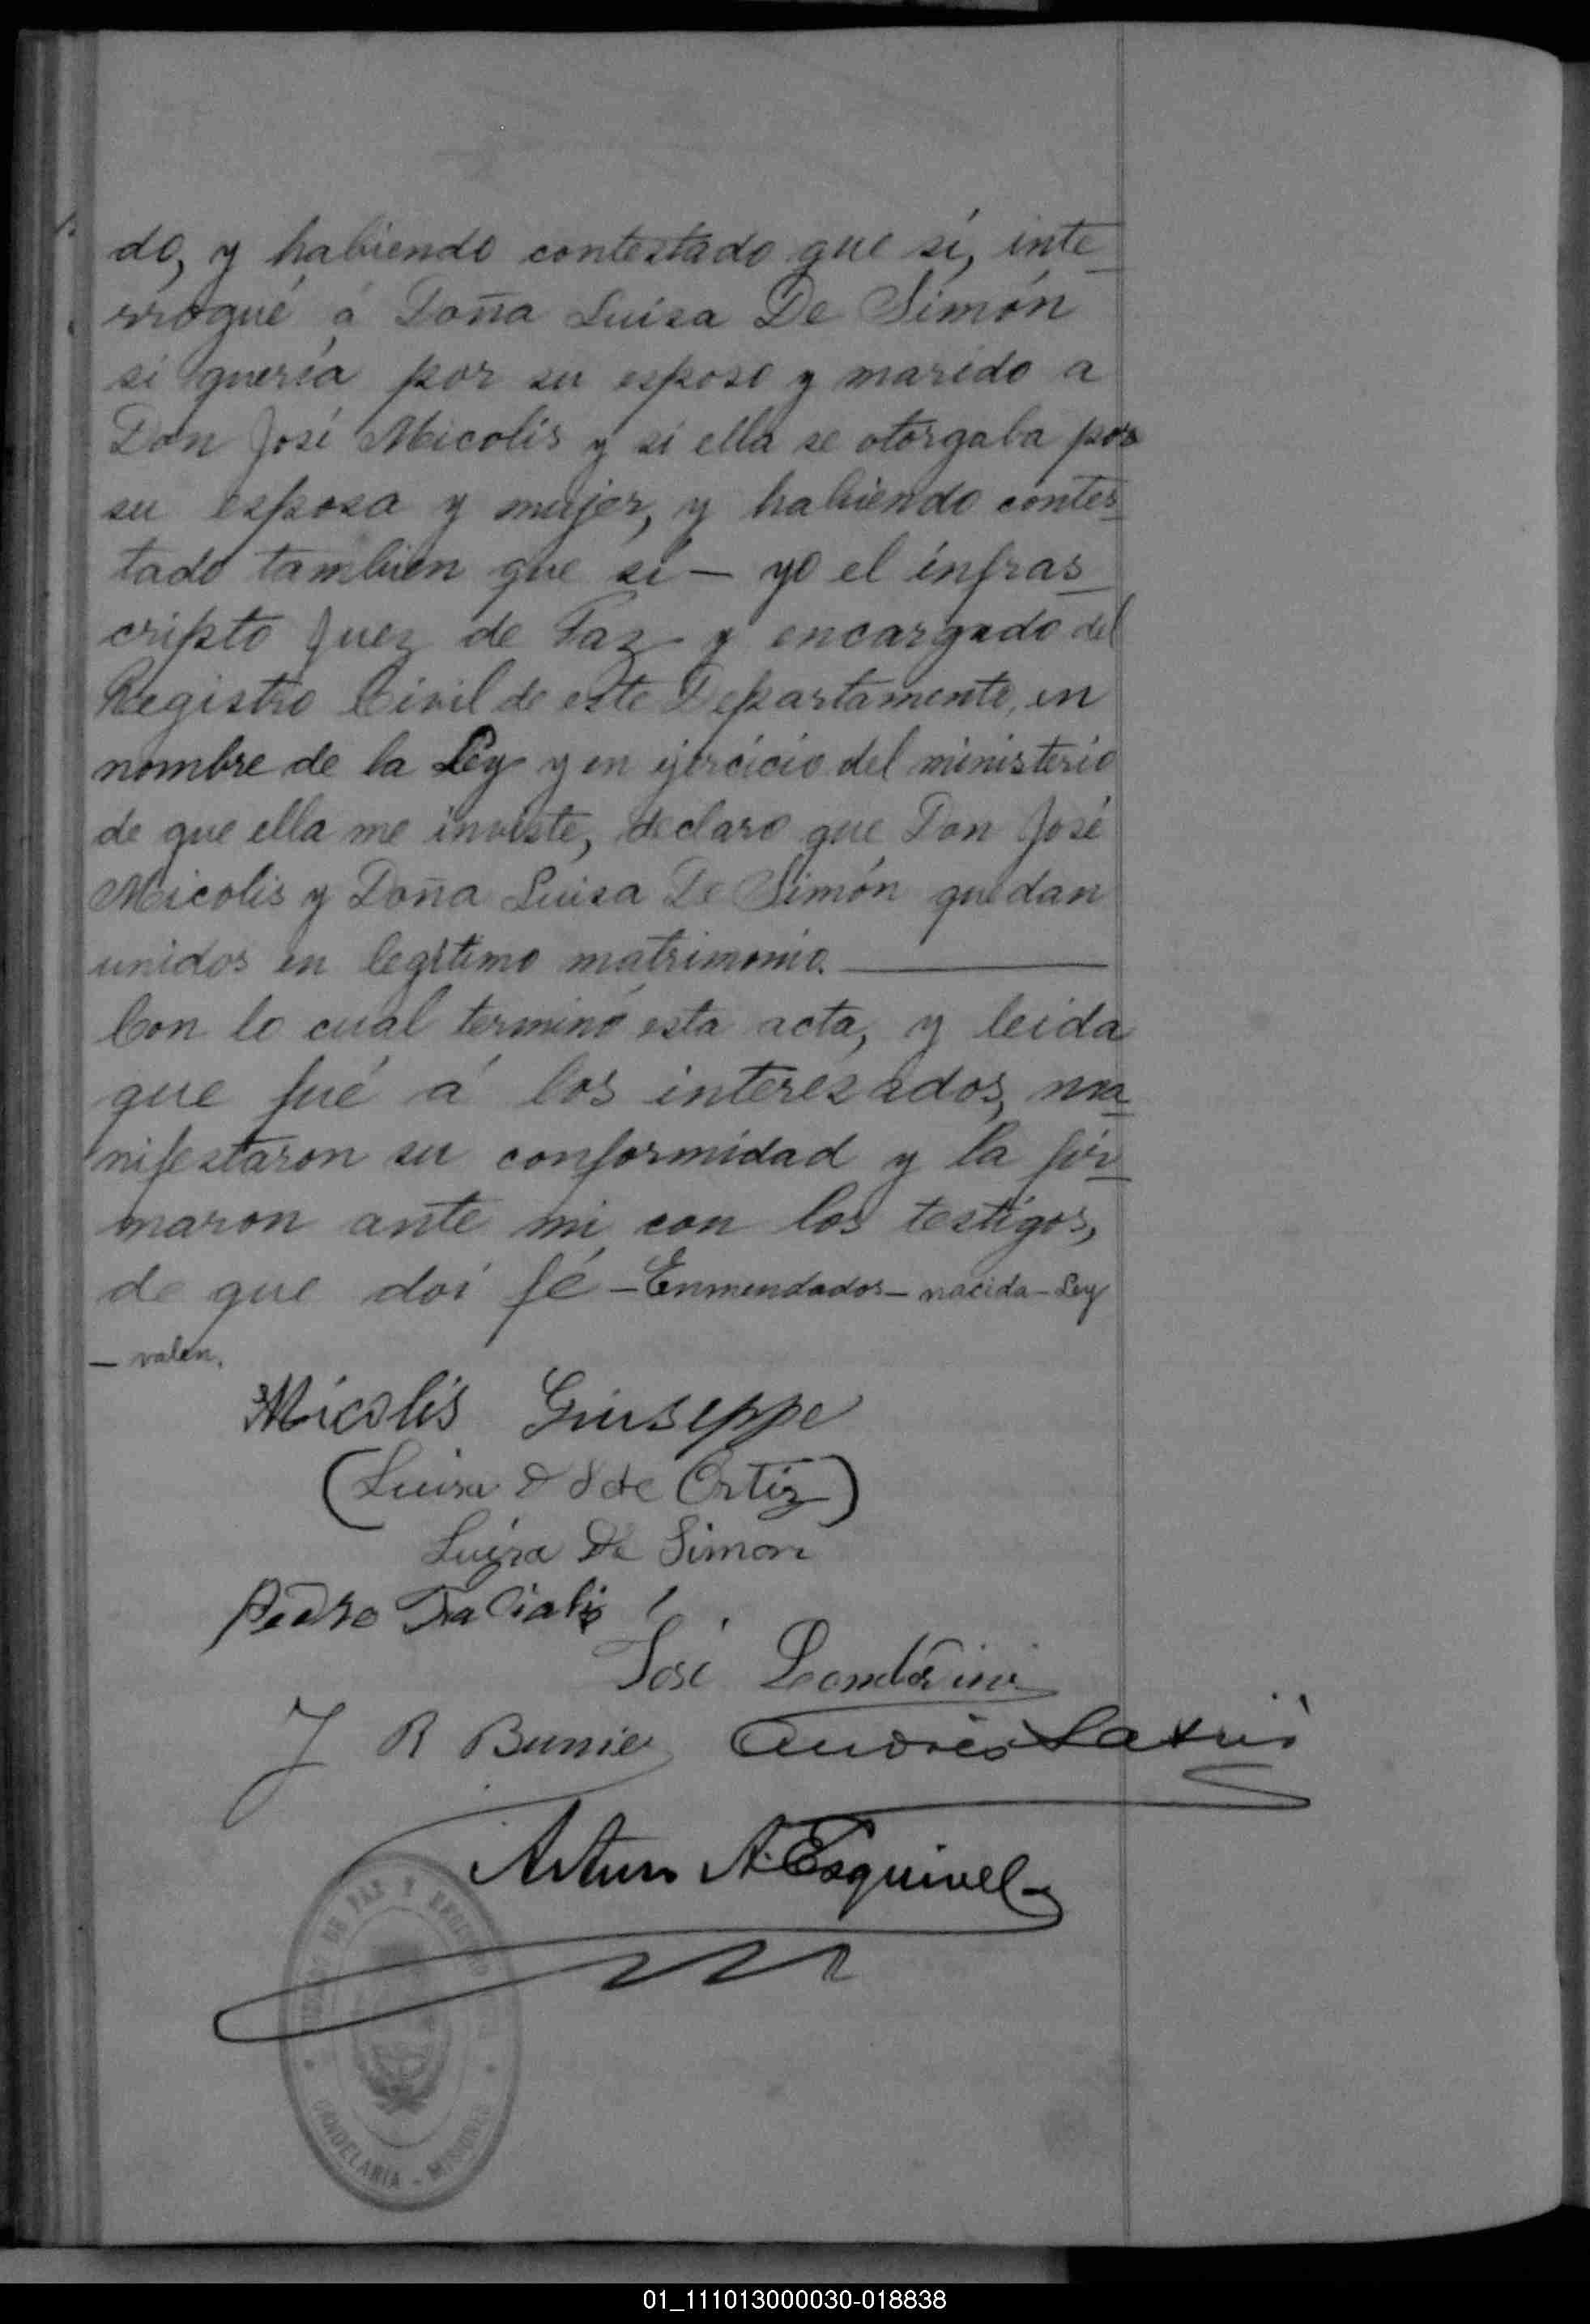 do, y habiendo contestado que sí, inte
rrogué á Doña Luisa De Simón
si quería por su esposo y marido a
Don José Micolis y si ella se otorgaba por
su esposa y mujer, y habiendo contes
tado tambien que sí — yo el infras
cripto Juez de Paz y encargado del
Registro Civil de este Departamento, en
nombre de la Ley y en ejercicio del ministerio
de que ella me inviste, declaro que Don José
Micolis y Doña Luisa De Simón quedan
unidos en legítimo matrimonio.
Con lo cual terminó esta acta, y leida
que fué á los interesados, ma
nifestaron su conformidad y la fir
maron ante mi con los testigos,
de que doi fé - Enmendados - nacida - Ley
— valen.
Micolis Giuseppe
(Luisa de Ortiz)
Luisa De Simon
Pedro
José
J R
Andrés
Arturo A. Esquivel
DE PAZ Y
CANDELARIA - MISIONES
01_111013000030-018838